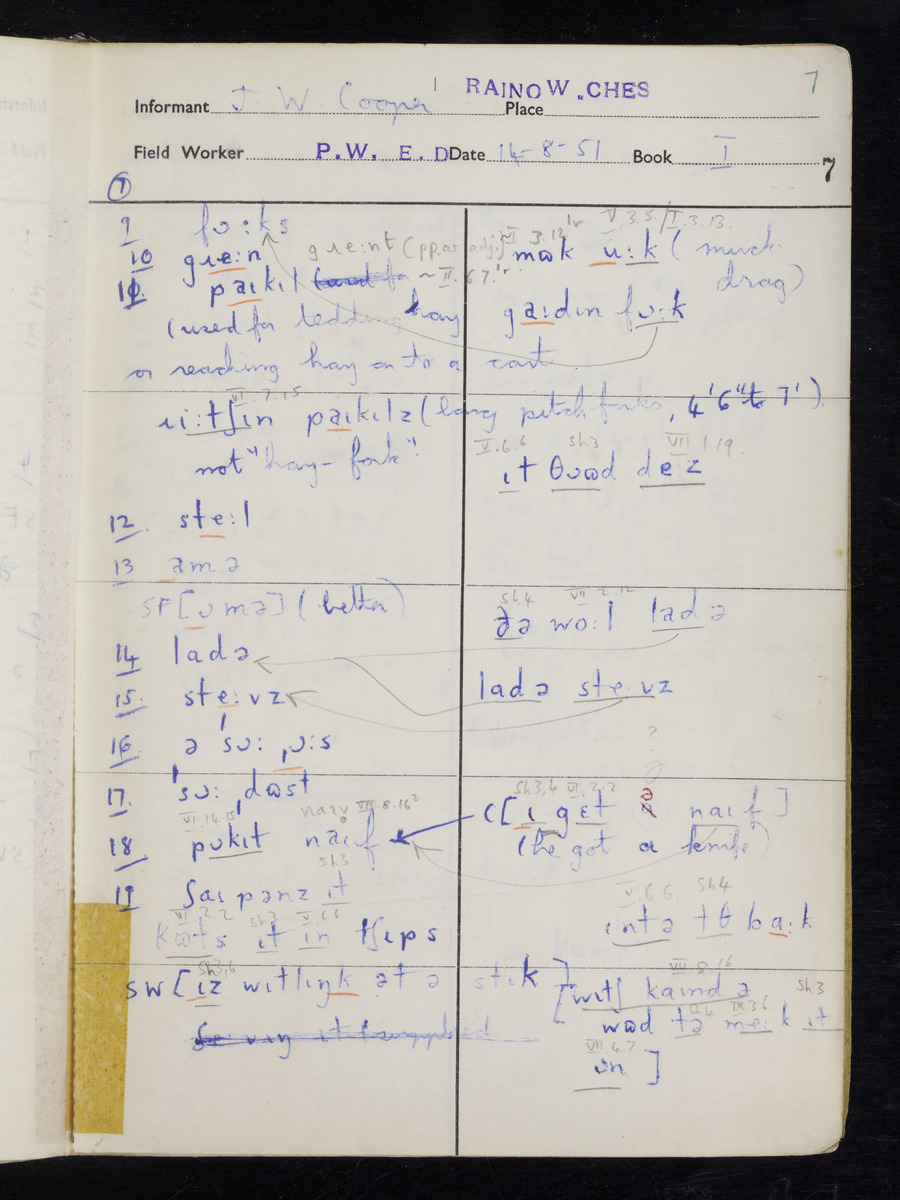 7
RAINOW, CHES
Informant J. W. Cooper Place
Field Worker P.W. E. D Date 14-8-51 Book I 7
⑦
9 fʊ:ks
V.3.5/I.3.13.
10 gɹe:n gɹe:nt (pp. as adj.)
mɷk ʊ:k (muck drag)
11 paɪkɪl
(used for tedding hay
or reaching hay on to a cart
ga:dɪn fʊ:k
VI.7.15
ɹi:tʃɪn paɪkɪlz (long pitch forks, 4'6" to 7').
not "hay-fork".
V.6.6 sh3 VII.1.19.
ɪt θɹɷd de:z
12 ste:l
13 amə
SF [ʊmə] (better)
sh4 VII.2.12
ðə wo:l ladə
14 ladə
15 ste:vz
ladə ste:vz
16 ə 'sʊ: ˌʊ:s
?
17 'sʊ: ˌdɷst
sh3,4 VI.2.2
C [ɪ gɛt ə naɪf]
(he got a knife)
VI.14.15 naɪv VII.8.16²
18 pʊkɪt naɪf
sh3
19 ʃaɪpənz ɪt
V.6.6. sh4
ɪntə tθ ba:k
VI.2.2 sh3 V.6.6
kɷts ɪt ɪn tʃɪps
sh3,6
SW [ɪz wɪtlɪŋk ət ə stɪk]
VII.8.16 sh3
[wɪtʃ kaɪnd ə
sh4 IX.3.6
wɷd tə me:k ɪt
VII.4.7
ʊn]